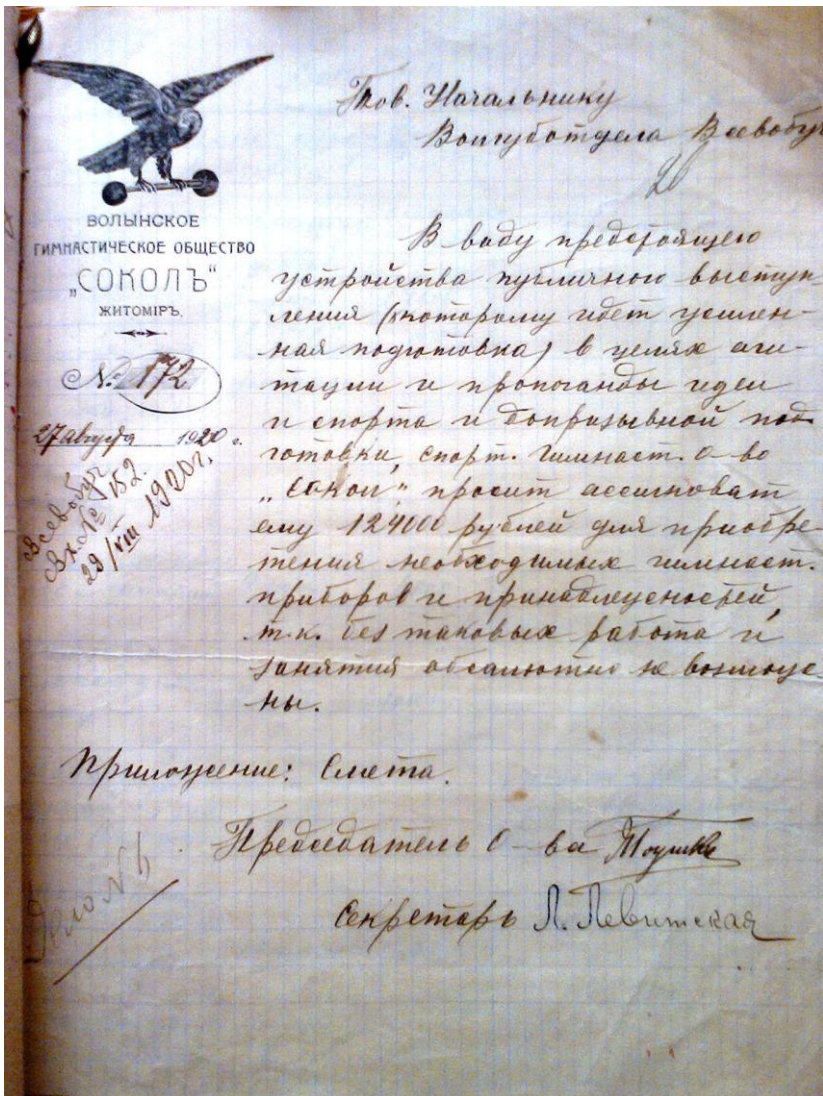 ВОЛЫНСКОЕ
ГИМНАСТИЧЕСКОЕ ОБЩЕСТВО
„СОКОЛЪ“
ЖИТОМІРЪ.
№ 172
27 августа 1920 г.
Всевобуч
Вх. № 152.
29/VIII 1920 г.
Тов. Начальнику
Волгуботдела Всевобуч
В виду предстоящего
устройства публичного выступ-
ления (к которому идет усилен-
ная подготовка) в целях аги-
тации и пропоганды идеи
и спорта и допризывной под
готовки, спорт. Гимнаст. О-во
„Сокол“ просит ассигноват
ему 124000 рублей для приобре
тения необходимых гимнаст.
приборов и принадлежностей,
т.к. без таковых работа и
занятия абсалютно не возмож-
ны.
Приложение: Смета.
Председатель О-ва
Секретарь Л. Левитская
Дело №